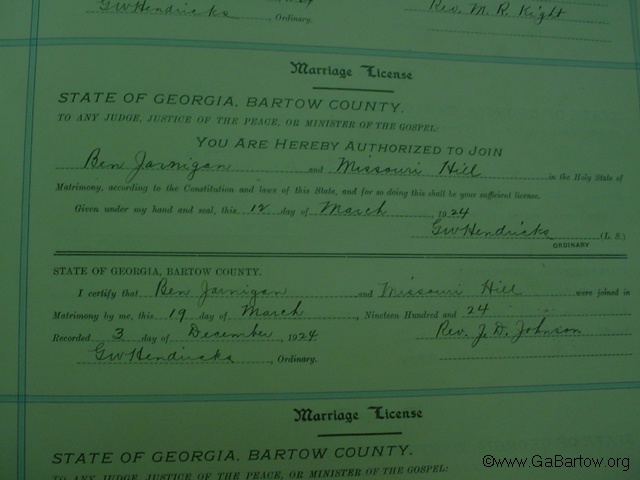 GW Hendricks , Ordinary.
Rev. M. R. Kight
Marriage License
STATE OF GEORGIA, BARTOW COUNTY.
TO ANY JUDGE, JUSTICE OF THE PEACE, OR MINISTER OF THE GOSPEL:
YOU ARE HEREBY AUTHORIZED TO JOIN
Ben Jarnigan and Missouri Hill in the Holy State of
Matrimony, according to the Constitution and laws of this State, and for so doing this shall be your sufficient license.
Given under my hand and seal, this 12 day of March , 1924
GW Hendricks (L. S.)
ORDINARY
STATE OF GEORGIA, BARTOW COUNTY.
I certify that Ben Jarnigan and Missouri Hill were joined in
Matrimony by me, this 19 day of March , Nineteen Hundred and 24
Recorded 3 day of December , 1924 Rev. J. D. Johnson
GW Hendricks , Ordinary.
Marriage License
STATE OF GEORGIA, BARTOW COUNTY.
TO ANY JUDGE, JUSTICE OF THE PEACE, OR MINISTER OF THE GOSPEL:
©www.GaBartow.org